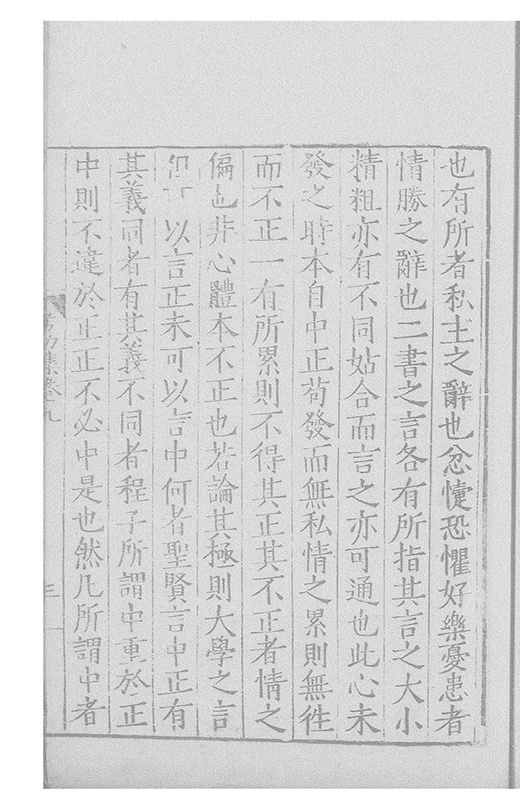 也有所者私主之辭也忿懥恐懼好樂憂患者
情勝之辭也二書之言各有所指其言之大小
精粗亦有不同姑合而言之亦可通也此心未
發之時本自中正苟發而無私情之累則無徃
而不正一有所累則不得其正其不正者情之
偏也非心體本不正也若論其極則大學之言
以言正未可以言中何者聖賢言中正有
其義同者有其義不同者程子所謂中重於正
中則不違於正正不必中是也然凡所謂中者
集卷九
三